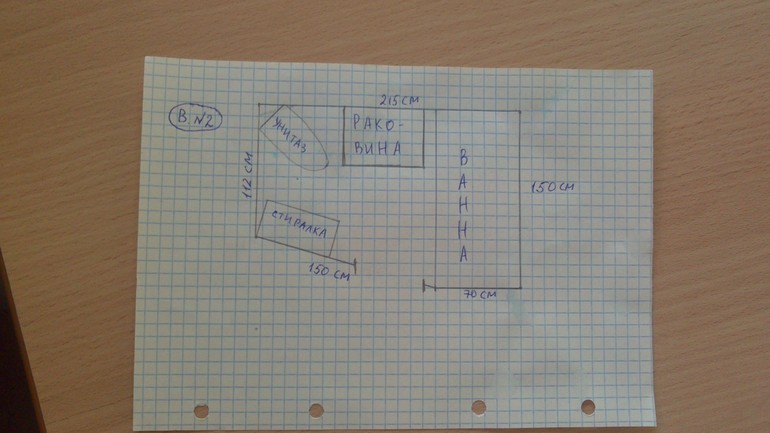 В №2
215 СМ
УНИТАЗ
РАКО-
ВИНА
ВАННА
112 СМ
150 СМ
СТИРАЛКА
150 СМ
70 СМ